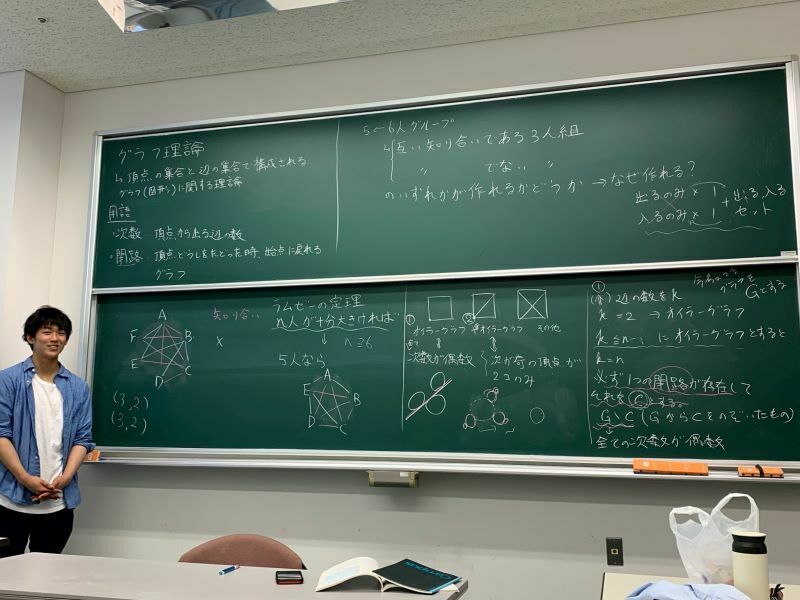 グラフ理論
↳ 頂点の集合と辺の集合で構成される
グラフ(図形)に関する理論
用語
・次数…頂点から出る辺の数
・閉路…頂点どうしをたどった時、始点に戻れる
グラフ
5←6人グループ
互い知り合いである3人組
〃 でない 〃
のいずれかが作れるかどうか → なぜ作れる?
出るのみ × 1 + 出る、入る
入るのみ × 1 セット
A
F B
E C
D
(3,2)
(3,2)
知り合い
×
ラムゼーの定理
n人が十分大きければ
↓
n≧6
5人なら
A
E B
D C
① ②
オイラーグラフ 準オイラーグラフ その他
次数が偶数
次が奇の頂点が
2コのみ
①
辺の数をk
グラフを
Gとする
k=2 → オイラーグラフ
にオイラーグラフとすると
k=n
必ず1つの閉路が存在して
それをCとする。
G\C (GからCをのぞいたもの)
全ての次数が偶数
Campus